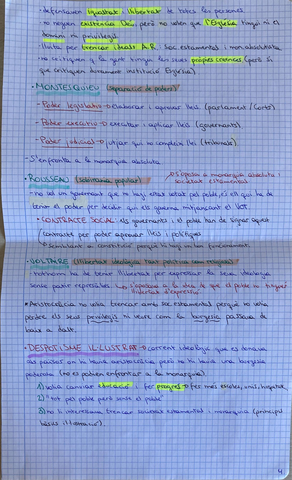 · defensaven igualtat i llibertat de totes les persones.
· no neguen existència Déu, però no volen que l'Església tingui ni el
domini ni privilegis.
· lluita per trencar ideals A.R. : soc. estamental i mon. absolutista.
· no critiquen q la gent tingui les seves pròpies creences (però sí
que critiquen durament institució Església)
• MONTESQUIEU (separació de poders)
- Poder legislatiu → elaborar i aprovar lleis (parlament / corts)
- Poder executiu → executar i aplicar lleis (governants)
- Poder judicial → jutjar qui no compleix lleis (tribunals)
- S'enfronta a la monarquia absoluta
• ROUSSEAU (sobirania popular) → s'oposa a monarquia absoluta i
societat estamental
- no vol un governant que no hagi estat votat pel poble, és ell qui ha de
tenir el poder per decidir qui els governa mitjançant el VOT.
• CONTRACTE SOCIAL els governants i el poble han de signar aquest
contracte per poder aprovar lleis i polítiques
→ semblant a constitució perquè hi hagi un bon funcionament.
• VOLTAIRE (llibertat ideològica tant política com religiosa)
- tothom ha de tenir llibertat per expressar la seva ideologia
sense patir represàlies. → s'oposava a la idea de que el poble no tingués
llibertat d'expressió
* Aristocràcia no volia trencar amb soc. estamental perquè no volia
perdre els seus privilegis ni veure com la burgesia passava de
baix a dalt.
• DESPOTISME IL·LUSTRAT → corrent ideològica que es donava
als països on hi havia aristocràcia però no hi havia una burgesia
poderosa (no es podien enfrontar a la monarquia)
1) volia canviar educació i fer progrés → fer més escoles, unis, hospitals.
2) "tot pel poble però sense el poble"
3) no li interessava trencar societat estamental i monarquia (principal
bàsics il·lustració).
4